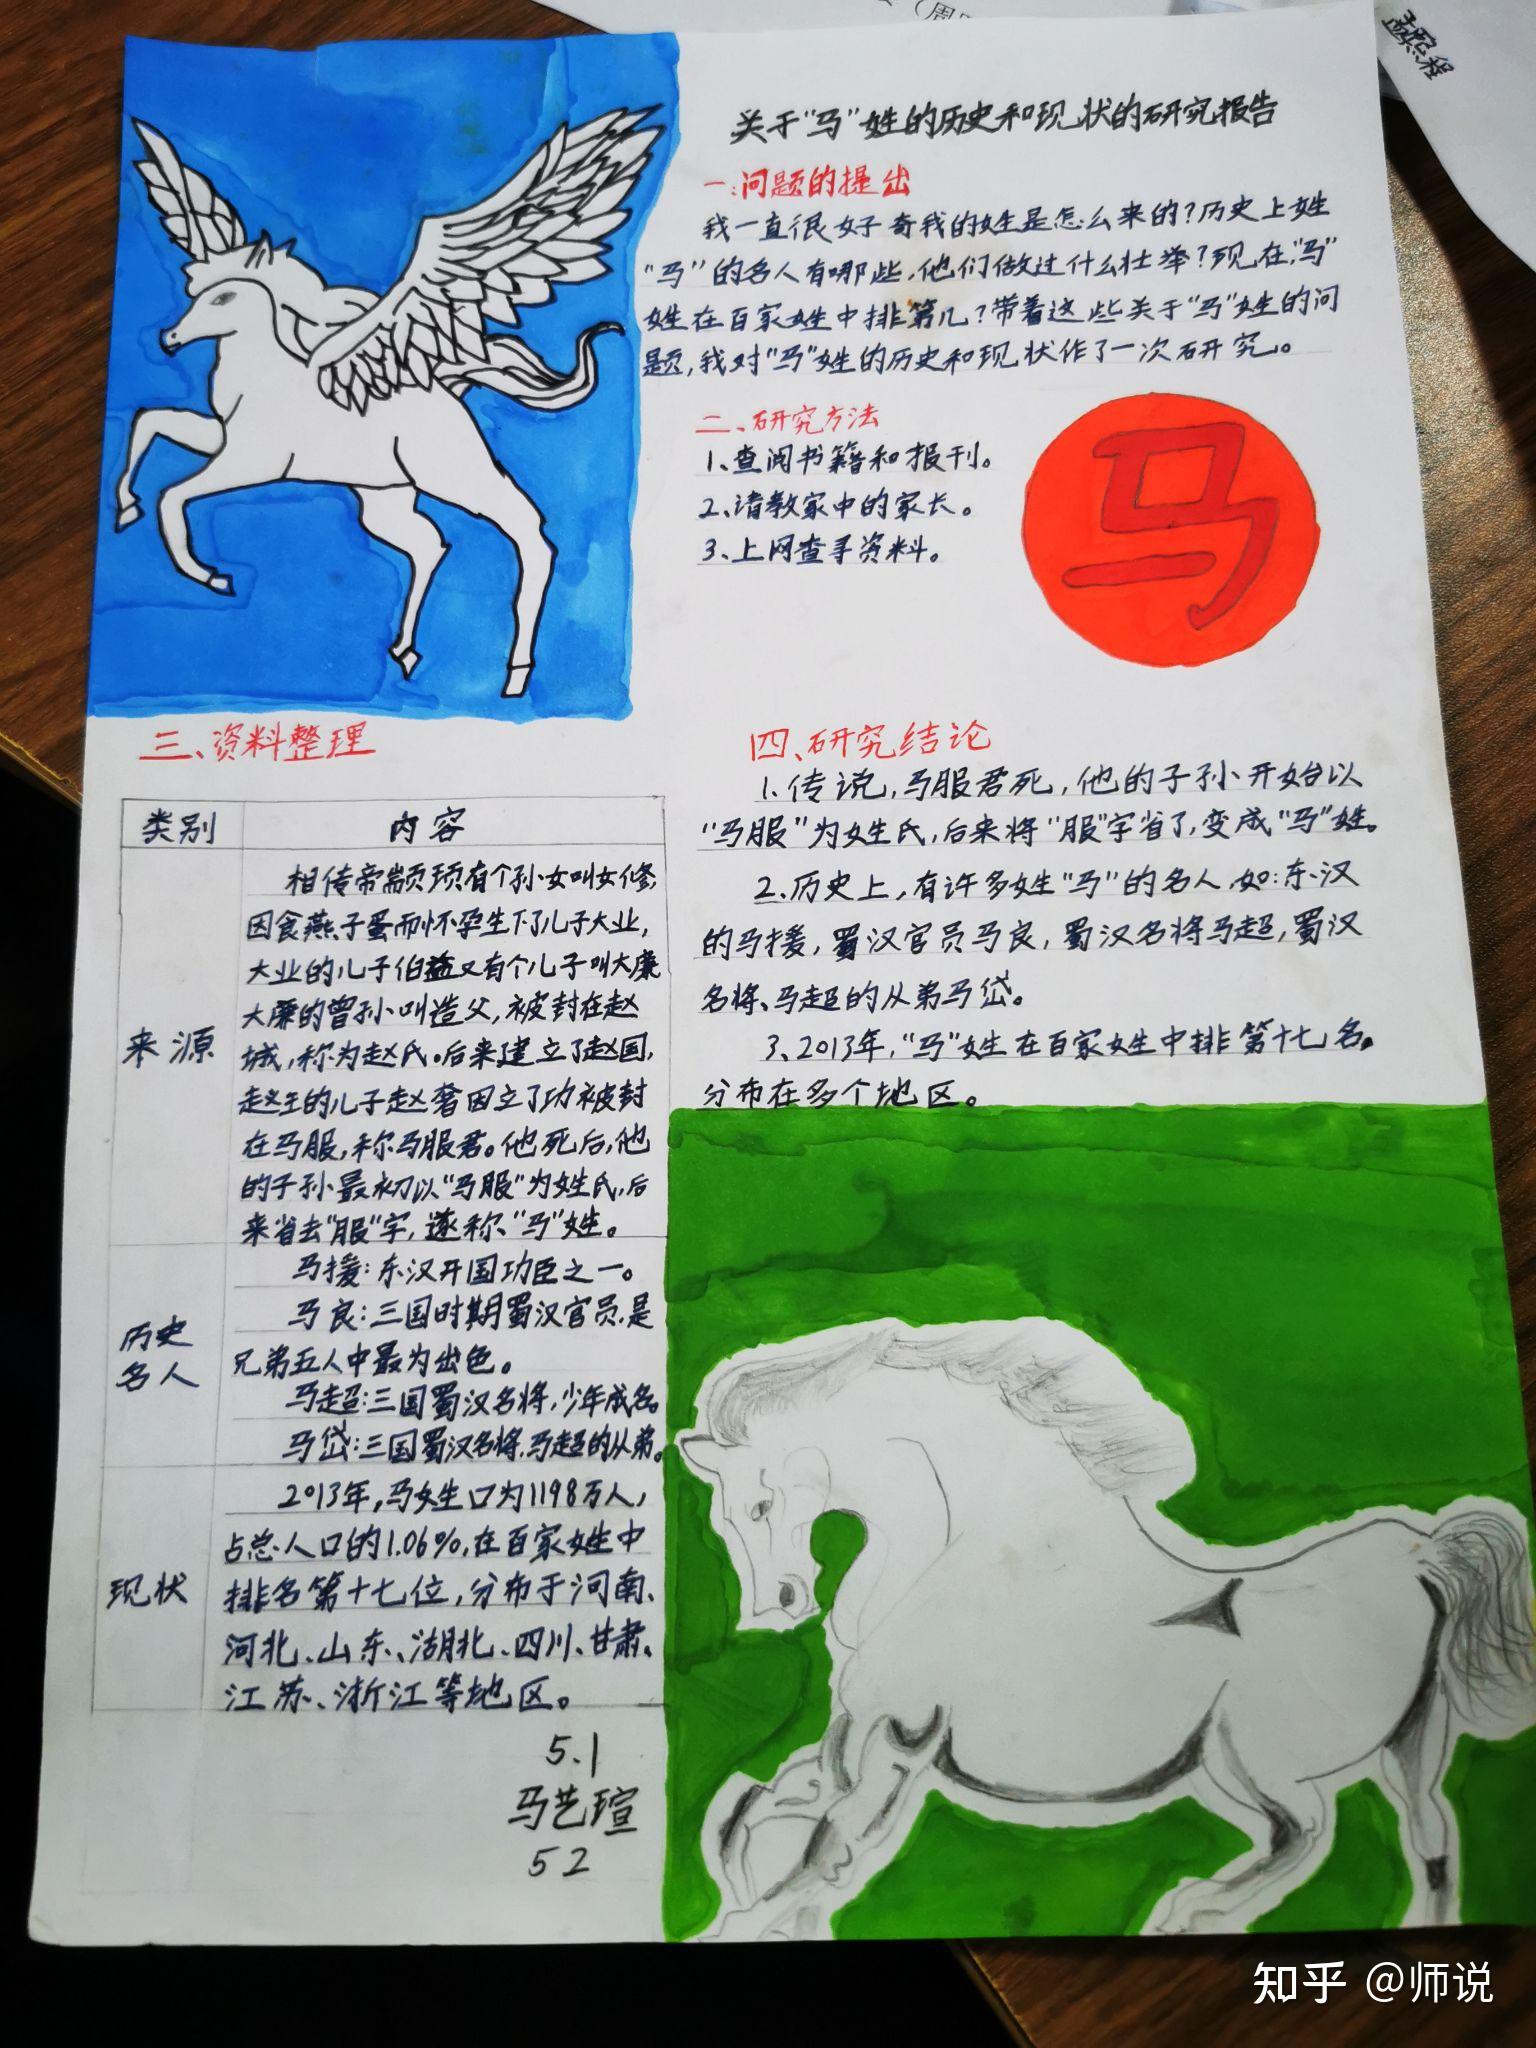 关于“马”姓的历史和现状的研究报告
一:问题的提出
我一直很好奇我的姓是怎么来的?历史上姓
“马”的名人有哪些,他们做过什么壮举?现在,“马”
姓在百家姓中排第几?带着这些关于“马”姓的问
题,我对“马”姓的历史和现状作了一次研究。
二、研究方法
1、查阅书籍和报刊。
2、请教家中的家长。
3、上网查寻资料。
马
三、资料整理
类别 内容
来源
相传帝颛顼有个孙女叫女修,
因食燕子蛋而怀孕生下了儿子大业,
大业的儿子伯益又有个儿子叫大廉
大廉的曾孙叫造父,被封在赵
城,称为赵氏。后来建立了赵国,
赵王的儿子赵奢因立了功被封
在马服,称马服君。他死后,他
的子孙最初以“马服”为姓氏,后
来省去“服”字,遂称“马”姓。
历史
名人
马援:东汉开国功臣之一。
马良:三国时期蜀汉官员,是
兄弟五人中最为出色。
马超:三国蜀汉名将,少年成名。
马岱:三国蜀汉名将,马超的从弟。
现状
2013年,马姓人口为1198万人,
占总人口的1.06%,在百家姓中
排名第十七位,分布于河南、
河北、山东、湖北、四川、甘肃、
江苏、浙江等地区。
四、研究结论
1.传说,马服君死,他的子孙开始以
“马服”为姓氏,后来将“服”字省了,变成“马”姓。
2.历史上,有许多姓“马”的名人,如:东汉
的马援,蜀汉官员马良,蜀汉名将马超,蜀汉
名将、马超的从弟马岱。
3、2013年,“马”姓在百家姓中排第十七名。
分布在多个地区。
5.1
马艺瑄
52
知乎 @师说